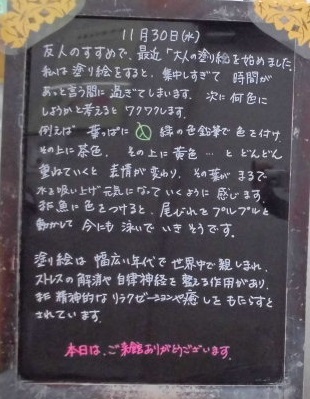 11月30日(水)
友人のすすめで、最近「大人の塗り絵を始めました。
私は塗り絵をすると、集中しすぎて 時間が
あっと言う間に 過ぎてしまいます。次に何色に
しようかと考えると ワクワクします。
例えば 葉っぱに 緑の色鉛筆で 色を付け
その上に茶色、その上に黄色…と どんどん
重ねていくと 表情が変わり、その葉が まるで
水を吸い上げ元気になっていくように 感じます。
また魚に色をつけると、尾びれをプルプルと
動かして 今にも 泳いで いき そうです。
塗り絵は 幅広い年代で 世界中で 親しまれ、
ストレスの 解消や 自律神経を 整える作用があり、
また 精神的な リラクゼーションや癒しを もたらすと
されています。
本日は、ご来館ありがとうございます。